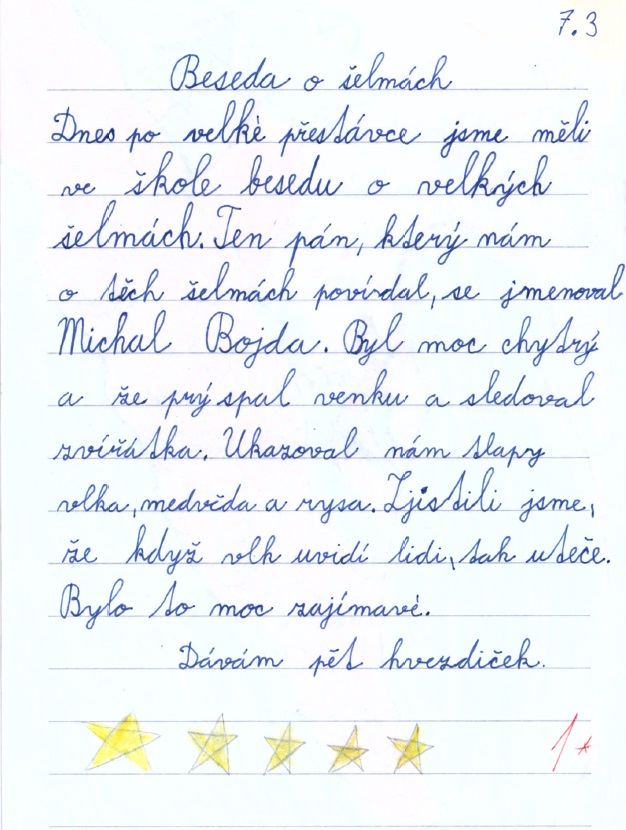 7.3
Beseda o šelmách
Dnes po velké přestávce jsme měli
ve škole besedu o velkých
šelmách. Ten pán, který nám
o těch šelmách povídal, se jmenoval
Michal Bojda. Byl moc chytrý
a že prý spal venku a sledoval
zvířátka. Ukazoval nám tlapy
vlka, medvěda a rysa. Zjistili jsme,
že když vlk uvidí lidi, tak uteče.
Bylo to moc zajímavé.
Dávám pět hvezdiček.
1*